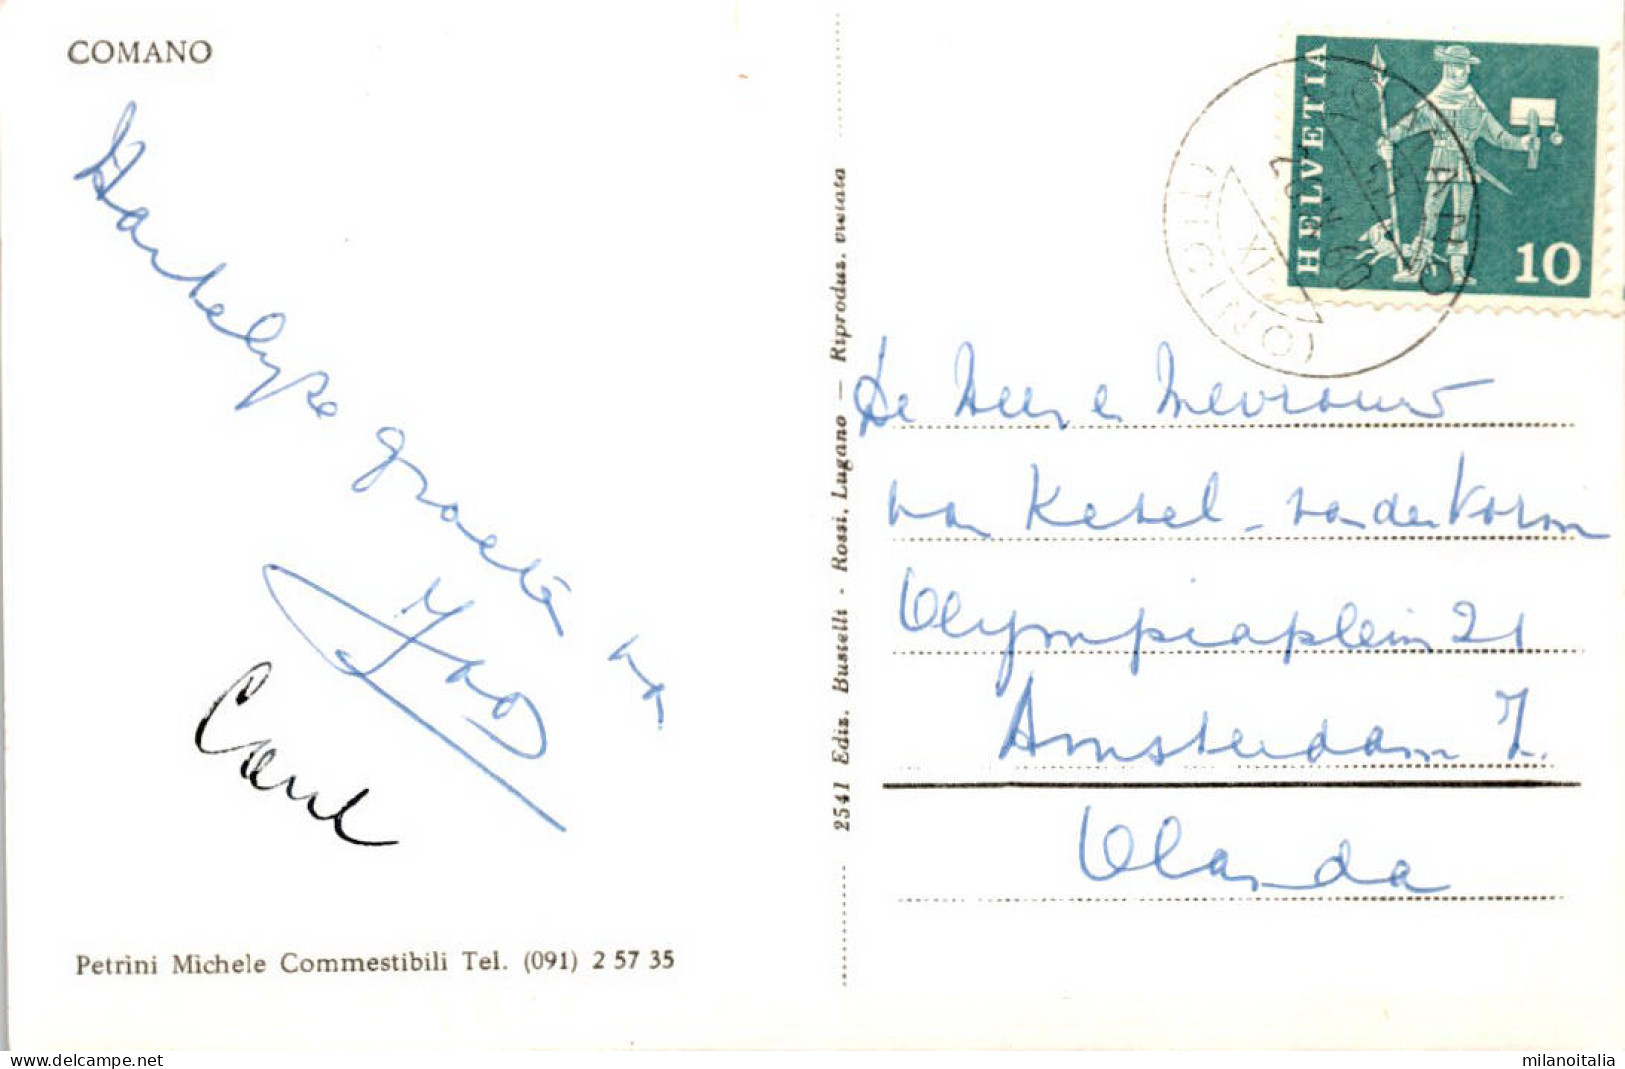 COMANO
Hartelyke groeten van
Carel
Petrini Michele Commestibili Tel. (091) 2 57 35
2541 Ediz. Bustelli - Rossi, Lugano — Riproduz. vietata
HELVETIA
10
COMANO
(TICINO)
De Heer en Mevrouw
van Ketel - van der Vorm
Olympiaplein 21
Amsterdam Z.
Olanda
delcampe.net
milanoitalia